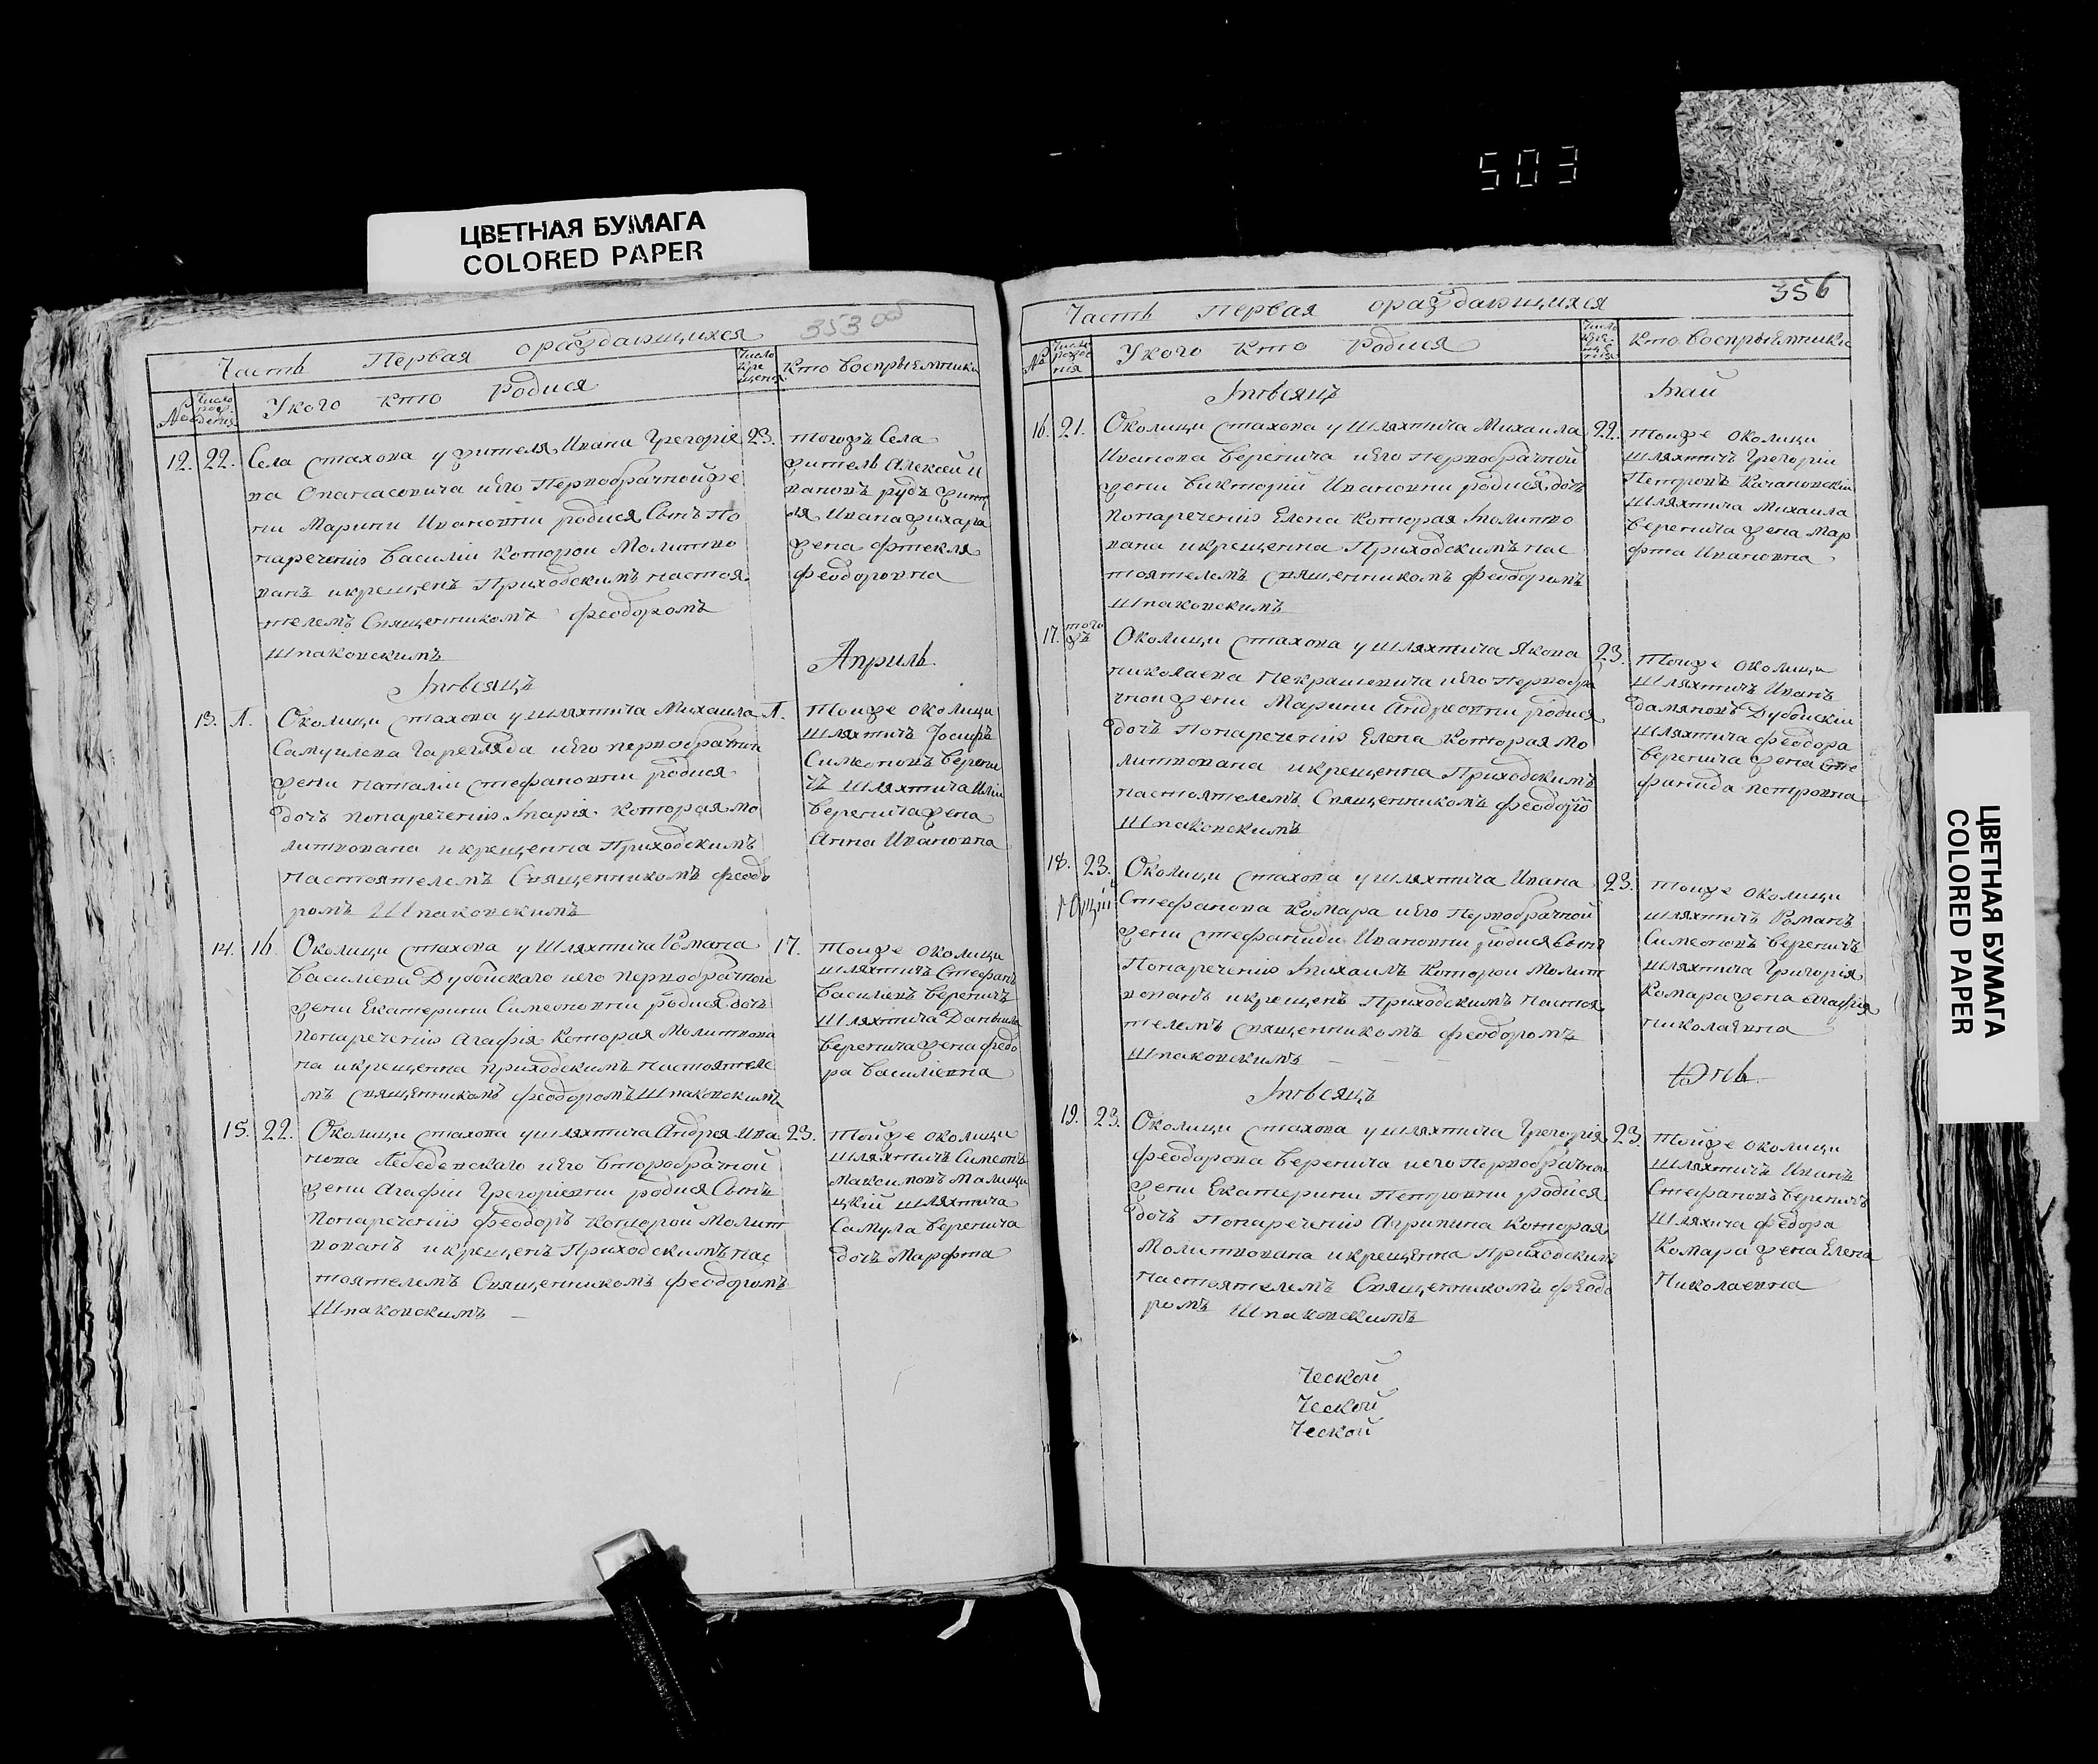 503
ЦВЕТНАЯ БУМАГА
COLORED PAPER
353 об
Часть Первая ораждающихся
№
Число рож дения
У кого кто родися
Число кре щения
Кто воспрыемники
12. 22.
Села Стахова у жителя Ивана Грегоріе
ва Опанасовича иего Первобрачной же
ни Марини Ивановни родися Сынъ по
наречению Василіи которои Молитво
ванъ икрещенъ Приходскимъ настоя
телемъ Священникомъ Феодоромъ
Шпаковскимъ
23.
тогожъ Села
житель Алексей И
вановъ рудъ жит
ля Ивана жихара
жена Фтекля
Феодоровна
Мѣсяцъ
Апрель
13. Л.
Околици Стахова у шляхтича Михаила
Самуилева Гарегляда иего первобрачни
жени наталіи Стефановни родися
дочъ понаречению Марія которая мо
литвована икрещенна Приходскимъ
настоятелемъ Священникомъ Феодо
ромъ Шпаковскимъ
Л.
тоиже околици
шляхтичъ Іосифъ
Симеоновъ Верени
чъ шляхтича Иліи
Веренича жена
Анна Ивановна
14. 16.
Околици Стахова у Шляхтича Романа
Василіева Дубойскаго иего первобрачной
жени Екатерини Симеоновни родися дочъ
понаречению Агафія Которая Молитвова
на икрещенна приходскимъ настоятеле
мъ священникомъ феодоромъ Шпаковскимъ
17.
тоиже околици
шляхтичъ Стефанъ
Василіевъ Вереничъ
Шляхтича Данѣила
Веренича жена федо
ра Василіевна
15. 22.
Околици Стахова у шляхтича Андрея Ива
нова Лебедевскаго иего второбрачной
жени Агафіи Грегоріевни родися Сынъ
Понаречению Феодоръ которой молит
вованъ икрещенъ Приходскимъ нас
тоятелемъ Священникомъ Феодоромъ
Шпаковскимъ
23.
тойже околици
шляхтичъ Симеонъ
Максимовъ Малищи
цкій шляхтича
Самула Веренича
дочъ Марфта
356
Часть первая ораждающихся
№
Число рожде нія
У кого кто родися
Число кре ще нія
Кто воспрыемники
Мѣсяцъ
Май
16. 21.
Околици Стахова у Шляхтича Михаила
Иванова Веренича иего Первобрачной
жени Викторіи Ивановни родися дочъ
Понаречению Елена Которая Молитво
вана икрещенна Приходскимъ нас
тоятелемъ Священникомъ Феодоромъ
Шпаковскимъ
22.
тоиже околици
шляхтичъ Грегоріи
Петровъ Качановскіи
шляхтича Михаила
Веренича жена Мар
фта Ивановна
17. того жъ
Околици Стахова у шляхтича Якова
николаева Некрашевича иего первобра
чнои жени Марини Андреовни родися
дочъ Понаречению Елена Которая Мо
литвована икрещенна Приходскимъ
настоятелемъ Священникомъ Феодоро
Шпаковскимъ
23.
тоиже околици
шляхтичъ Иванъ
дамяновъ Дубойскіи
шляхтича Феодора
Веренича жена Сте
фанида петровна
18. 23.
Околици Стахова у шляхтича Ивана
Стефанова Комара иего Первобрачной
жени Стефаниди Ивановни родися Сынъ
Понаречению Михаилъ Которои Молит
вованъ икрещенъ Приходскимъ настоя
телемъ священникомъ Феодоромъ
Шпаковскимъ
23.
тоиже околици
шляхтичъ Романъ
Симеоновъ Вереничъ
шляхтича Григорія
Комара жена Агафія
николаевна
Мѣсяцъ
Юнь
19. 23.
Околици Стахова у шляхтича Грегорія
Феодорова Веренича иего Первобрачно
жени Екатерини Петровни родися
дочъ Понаречению Агрипина Которая
Молитвована икрещенна Приходским
Настоятелемъ Священникомъ Феодо
ромъ Шпаковскимъ
23
тойже околици
шляхтичъ Иванъ
Стефановъ Вереничъ
шляхича Федора
Комара жена Елена
Николаевна
Ческой
Ческой
Ческой
ЦВЕТНАЯ БУМАГА
COLORED PAPER